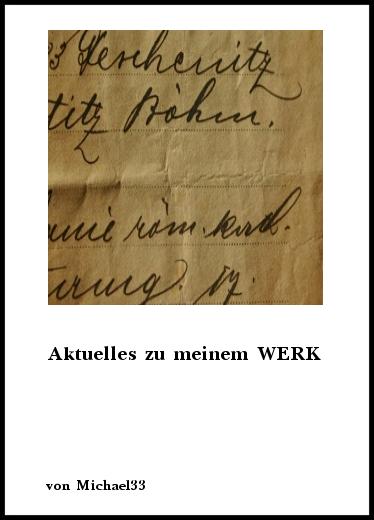 33 Meschenitz
titz Böhm.
röm. kad.
17.
Aktuelles zu meinem WERK
von Michael33